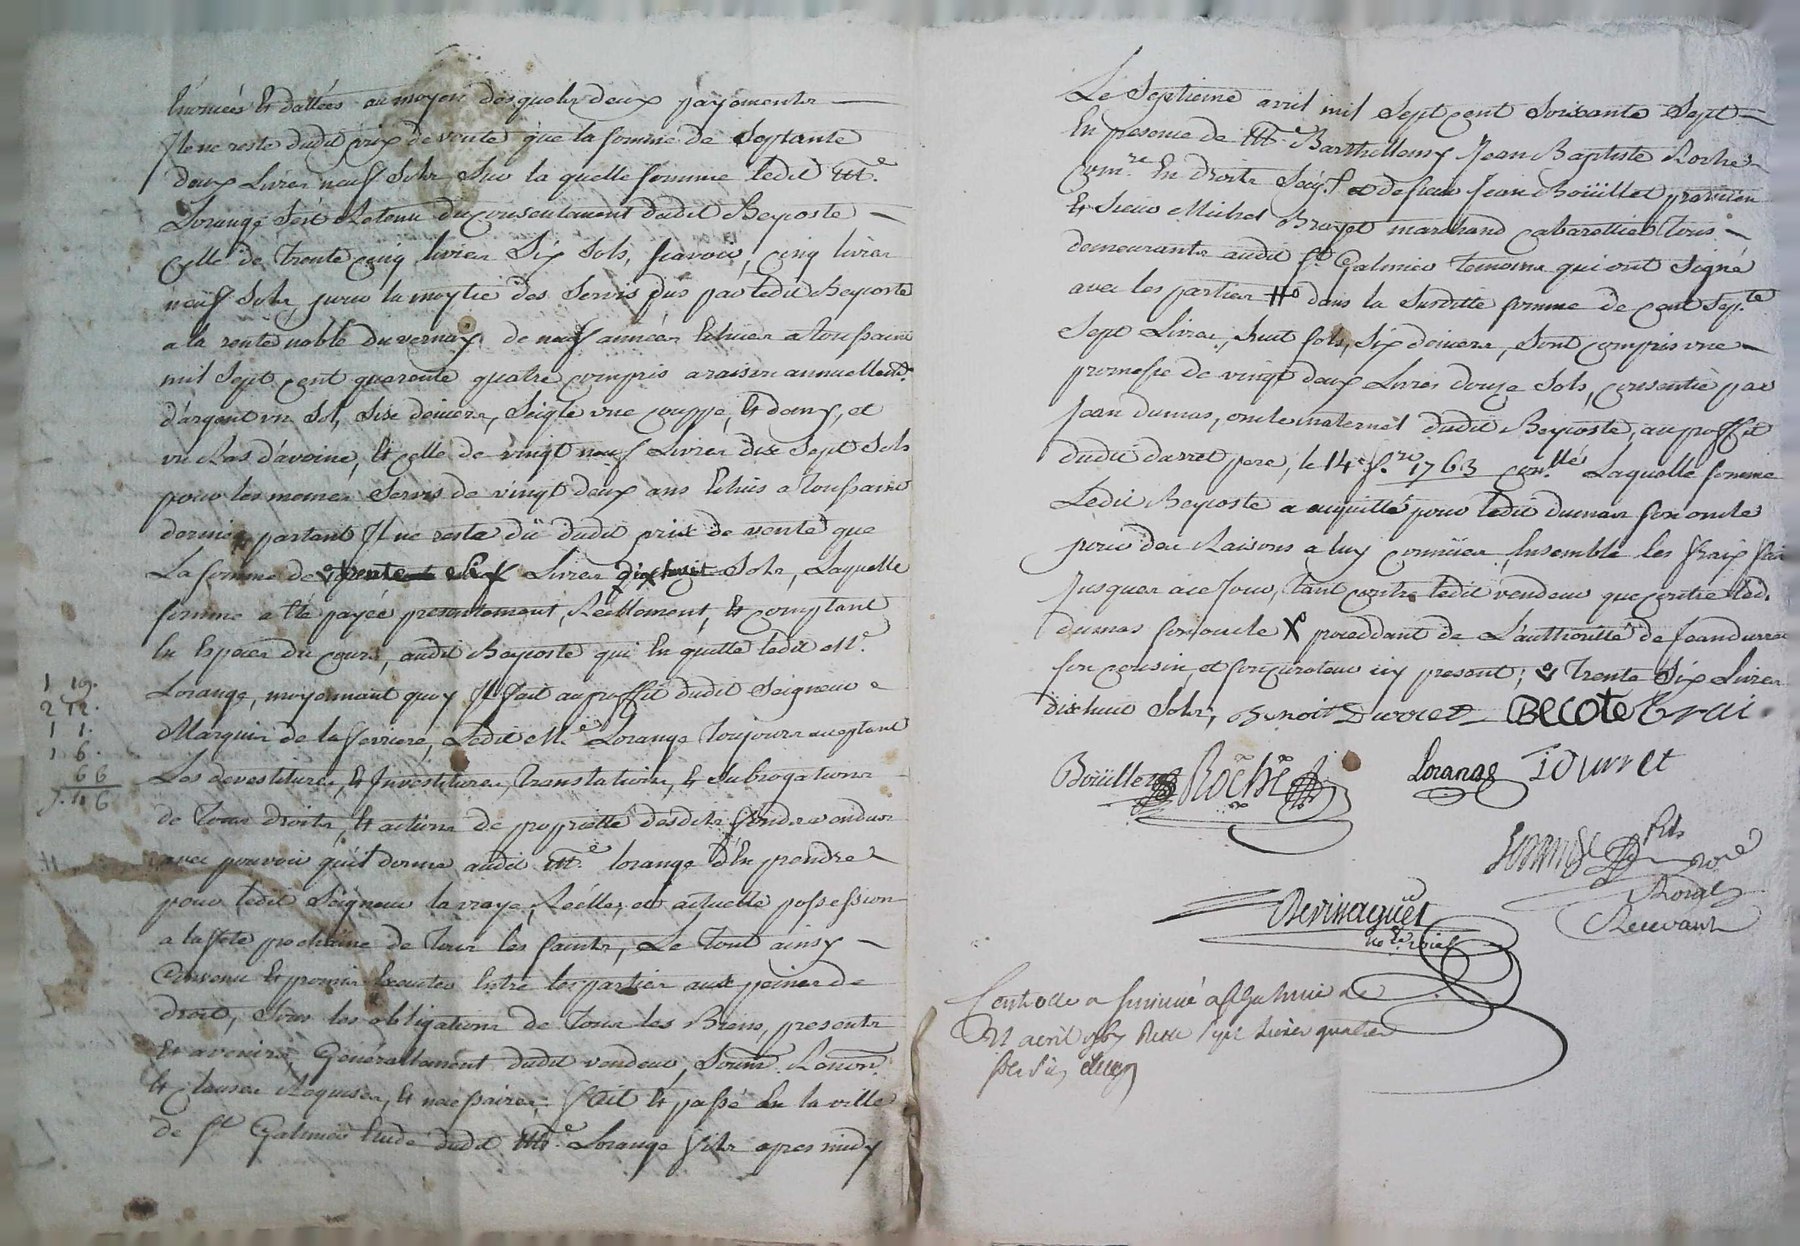 Enoncées Et dattées au moyen desquels deux payements
Il ne reste dudit prix de vente que la somme de Septante
deux Livres neuf Sols Sur la quelle somme ledit Me.
Lorange s'est Retenu du consentement dudit Beyoste
celle de trente cinq livres Six Sols, scavoir, cinq livres
neuf Sols, pour la moytié des Servis dus par ledit Beyoste
a la rente noble du vernay de neuf années Echues a toussaint
mil Sept cent quarente quatre compris a raison annuellemt.
d'argent un Sol, Sise deniers, Seigle une couppe, Et demy, et
un Ras d'avoine, Et celle de vingt neuf Livres dix Sept Sols
pour les memes Servis de vingt deux ans Echus a toussaint
dernier partant Il ne reste dû dudit prix de vente que
La somme de trente Six Livres dix huit Sols, Laquelle
somme a Eté payée presentement, Réellement, Et comptant
En Especes du cours, audit Beyoste qui En quitte ledit Me.
Lorange, moyennant quoy Il fait au proffit dudit Seigneur
Marquis de la ferriere, Ledit Me. Lorange toujours acceptant
Les devestitures, Et Investitures, translations, Et Subrogations
de tous droits, Et actions de proprieté desdits fonds vendus
avec pouvoir qu'il donne audit Me. lorange d'En prendre
pour ledit Seigneur la vraye, Réelle, et actuelle possession
a la fête prochaine de tous les saints, Le tout ainsy
Convenu Et promis Executer Entre les parties aux peines de
droit, Sous les obligations de tous les Biens, presents
Et avenirs Generallement dudit vendeur, Soum. Renon.
Et clauses Requises, Et necessaires, fait Et passé En la ville
de St. Galmier Etude dudit Me. Lorange fils apres midy
1 19.
2 12.
1 1.
1 6.
6 6
7. 4 6
Le Septieme avril mil Sept cent Soixante Sept
En presence de Me. Barthellemy Jean Baptiste Roche
En droits de sieur Jean Boüillet praticien
Et Sieur Michel Brayet marchand cabarettier tous
demeurants audit St. Galmier temoins qui ont Signé
avec les parties dans la Susditte somme de cent Septe.
Sept Livres, huit sols, Six deniers, Sont compris une
promesse de vingt deux Livres douze Sols, consentie par
Jean dumas, oncle maternel dudit Beyoste, au proffit
dudit darret pere, le 14e. 1763 conllé. Laquelle somme
Ledit Beyoste a acquitté pour ledit dumas son oncle
pour des Raisons a luy connües, Ensemble les fraix fai
Jusques a ce Jour, tant contre ledit vendeur que contre led.
dumas son oncle X proceddant de L'authorité de Jean durret
son cousin, et son curateur icy present; trente Six Livres
dix huit Sols, Benoit Durret BECOTE Brai
Boüillet Roche Lorange J Durret
Lorange fils
Noré
Royal
Recevant
Revinaguet
nore. roial
Controllé a St Galmier le
avril 1767 Recu Sept Livres quatre
sols Six